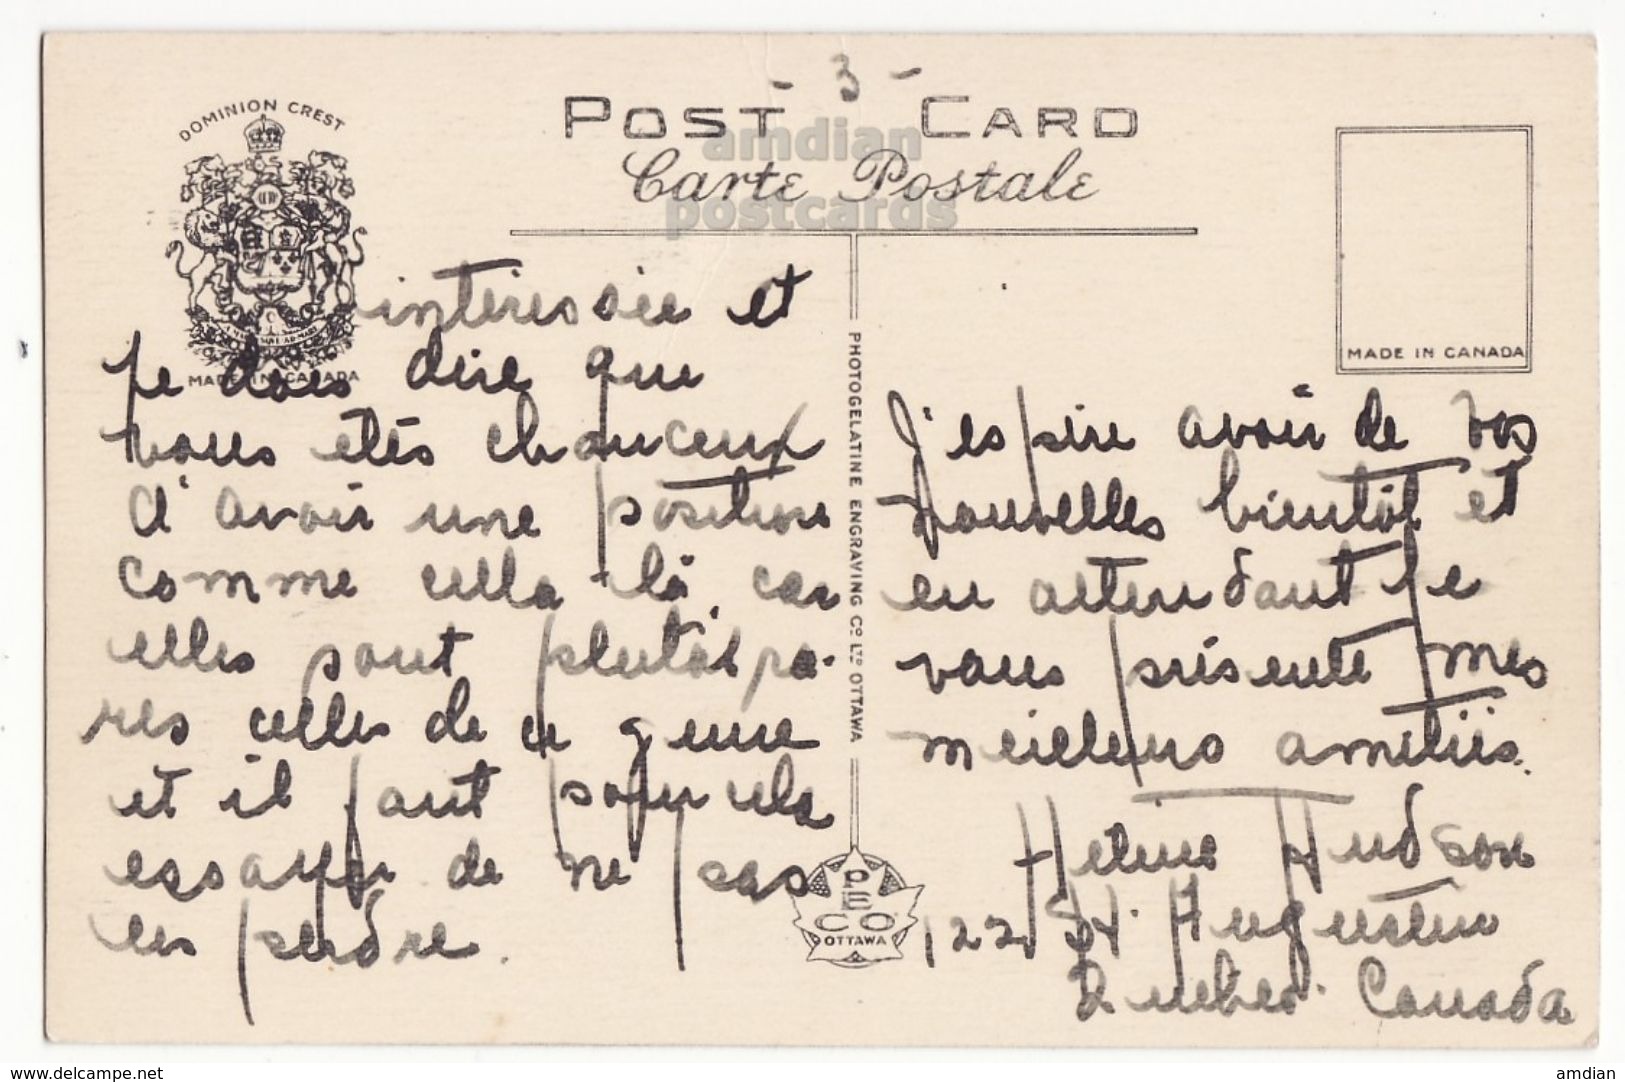 - 3 -
DOMINION CREST
POST CARD
Carte Postale
amdian
postcards
MADE IN CANADA
MADE IN CANADA
interessée et
je dois dire que
vous etes chanceux
d'avoir une position
comme cella là car
elles sont plutôt ra-
res celles de ce genre
et il faut
essayer de ne pas
les perdre.
PHOTOGELATINE ENGRAVING CO LTD OTTAWA
PECO
OTTAWA
J'espère avoir de vos
nouvelles bientôt et
en attendant je
vous présente mes
meilleurs amitiés.
Hudson
122 St. Augustin
Quebec. Canada
www.delcampe.net
amdian